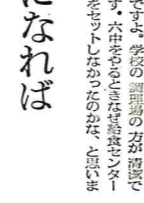 ですよ。学校の調理場の方が清潔で
す。六中をやるときなぜ給食センター
をセットしなかったのかな、と思いま
になれば